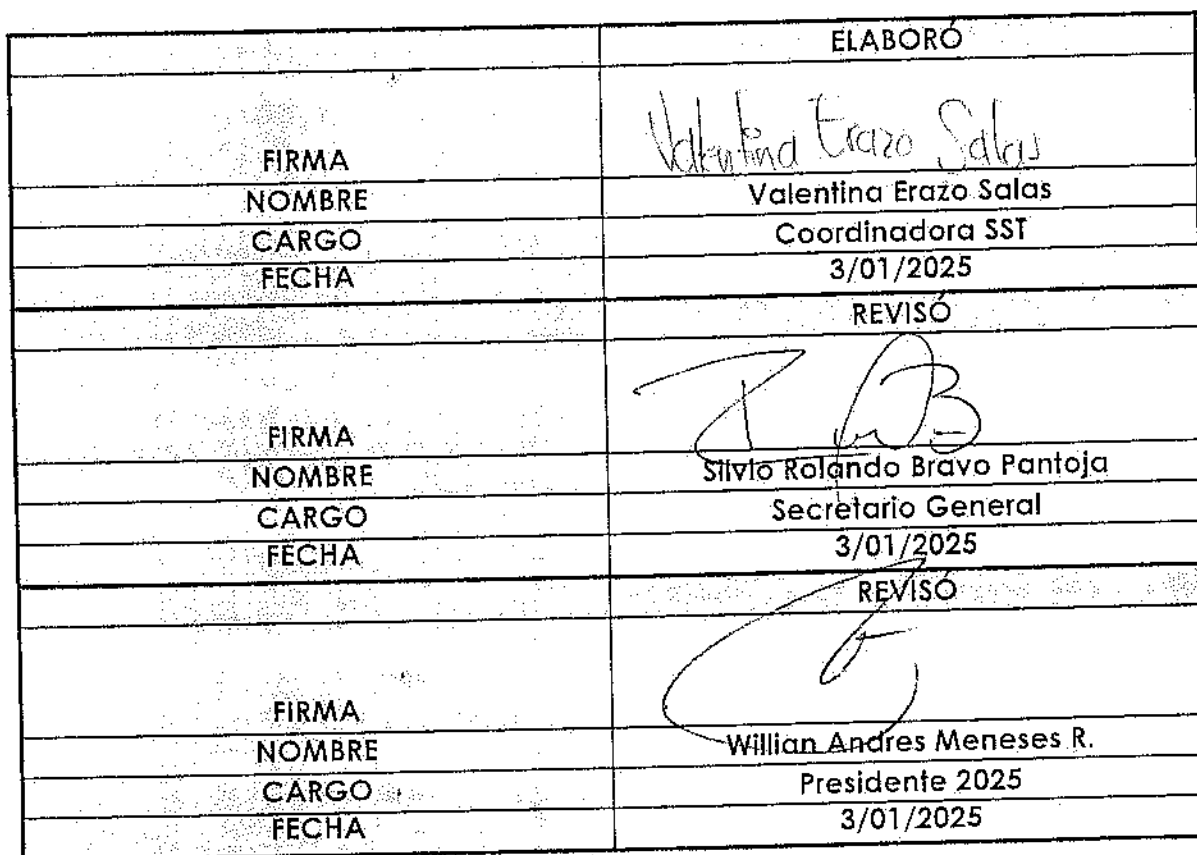 ELABORÓ
FIRMA Valentina Erazo Salas
NOMBRE Valentina Erazo Salas
CARGO Coordinadora SST
FECHA 3/01/2025
REVISÓ
FIRMA
NOMBRE Silvio Rolando Bravo Pantoja
CARGO Secretario General
FECHA 3/01/2025
REVISÓ
FIRMA
NOMBRE Willian Andres Meneses R.
CARGO Presidente 2025
FECHA 3/01/2025